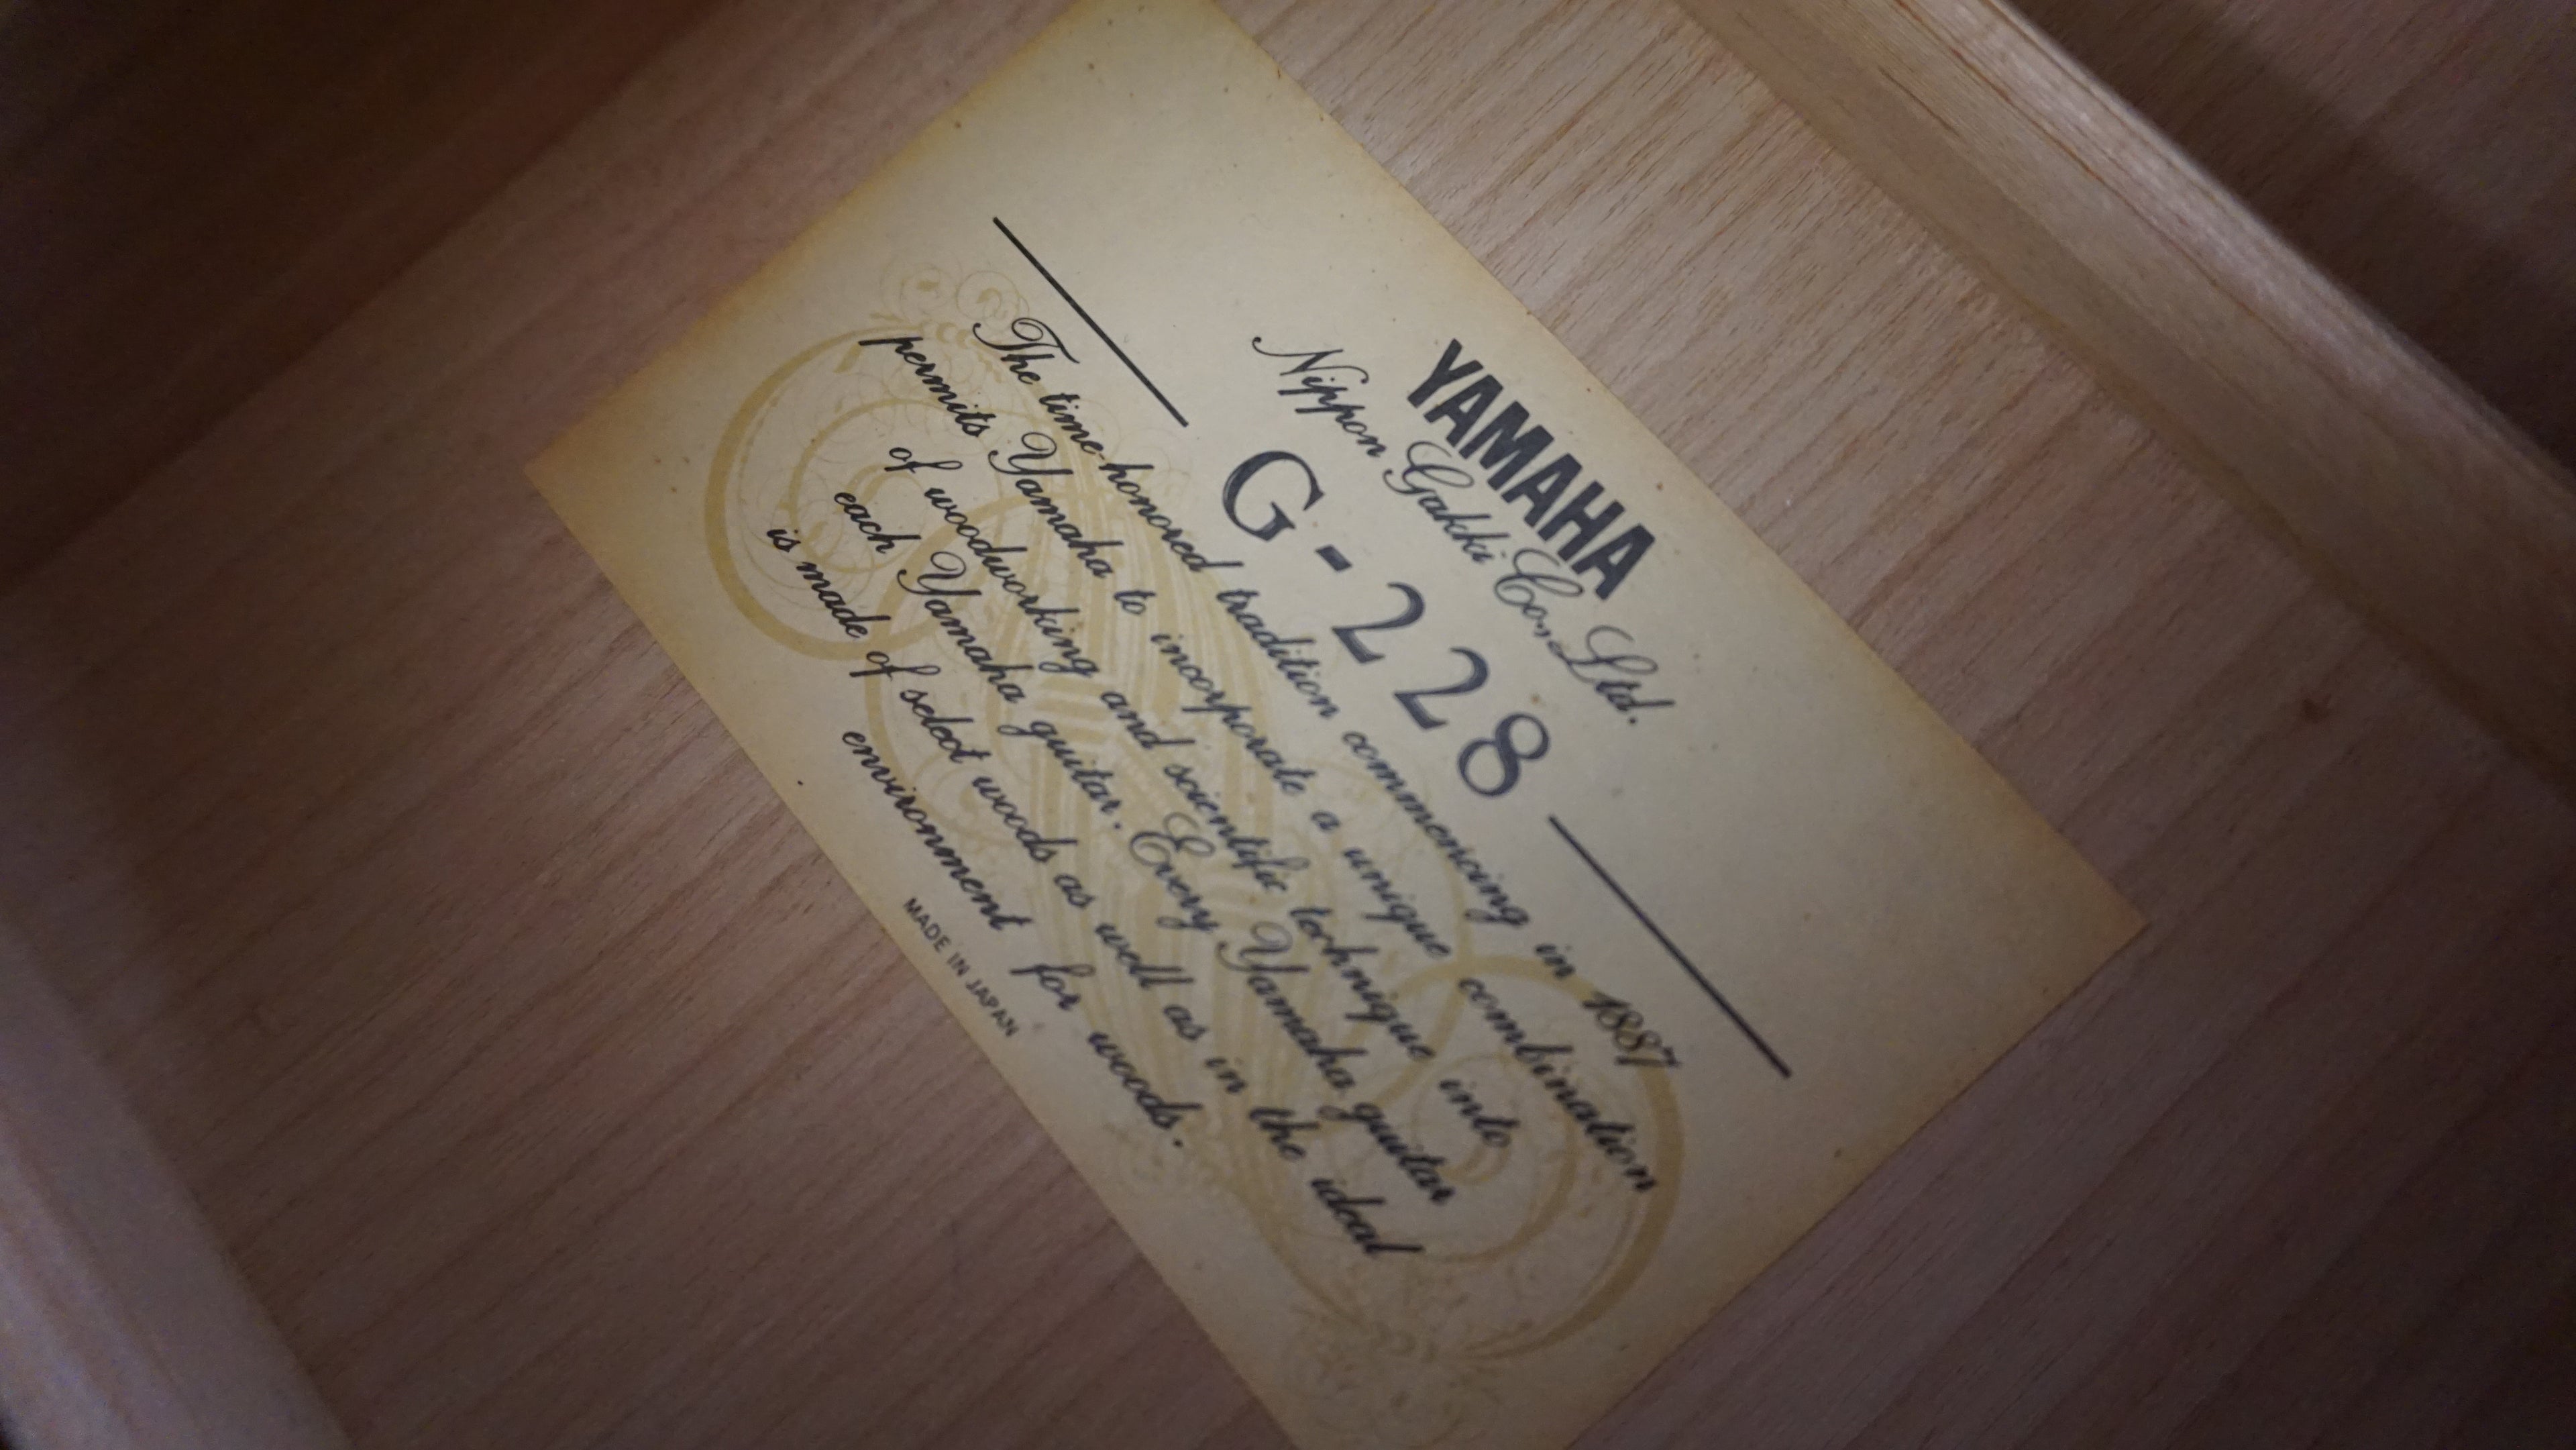 YAMAHA
Nippon Gakki Co., Ltd.
G-228
The time-honored tradition commencing in 1887
permits Yamaha to incorporate a unique combination
of woodworking and scientific technique into
each Yamaha guitar. Every Yamaha guitar
is made of select woods as well as in the ideal
environment for woods.
MADE IN JAPAN